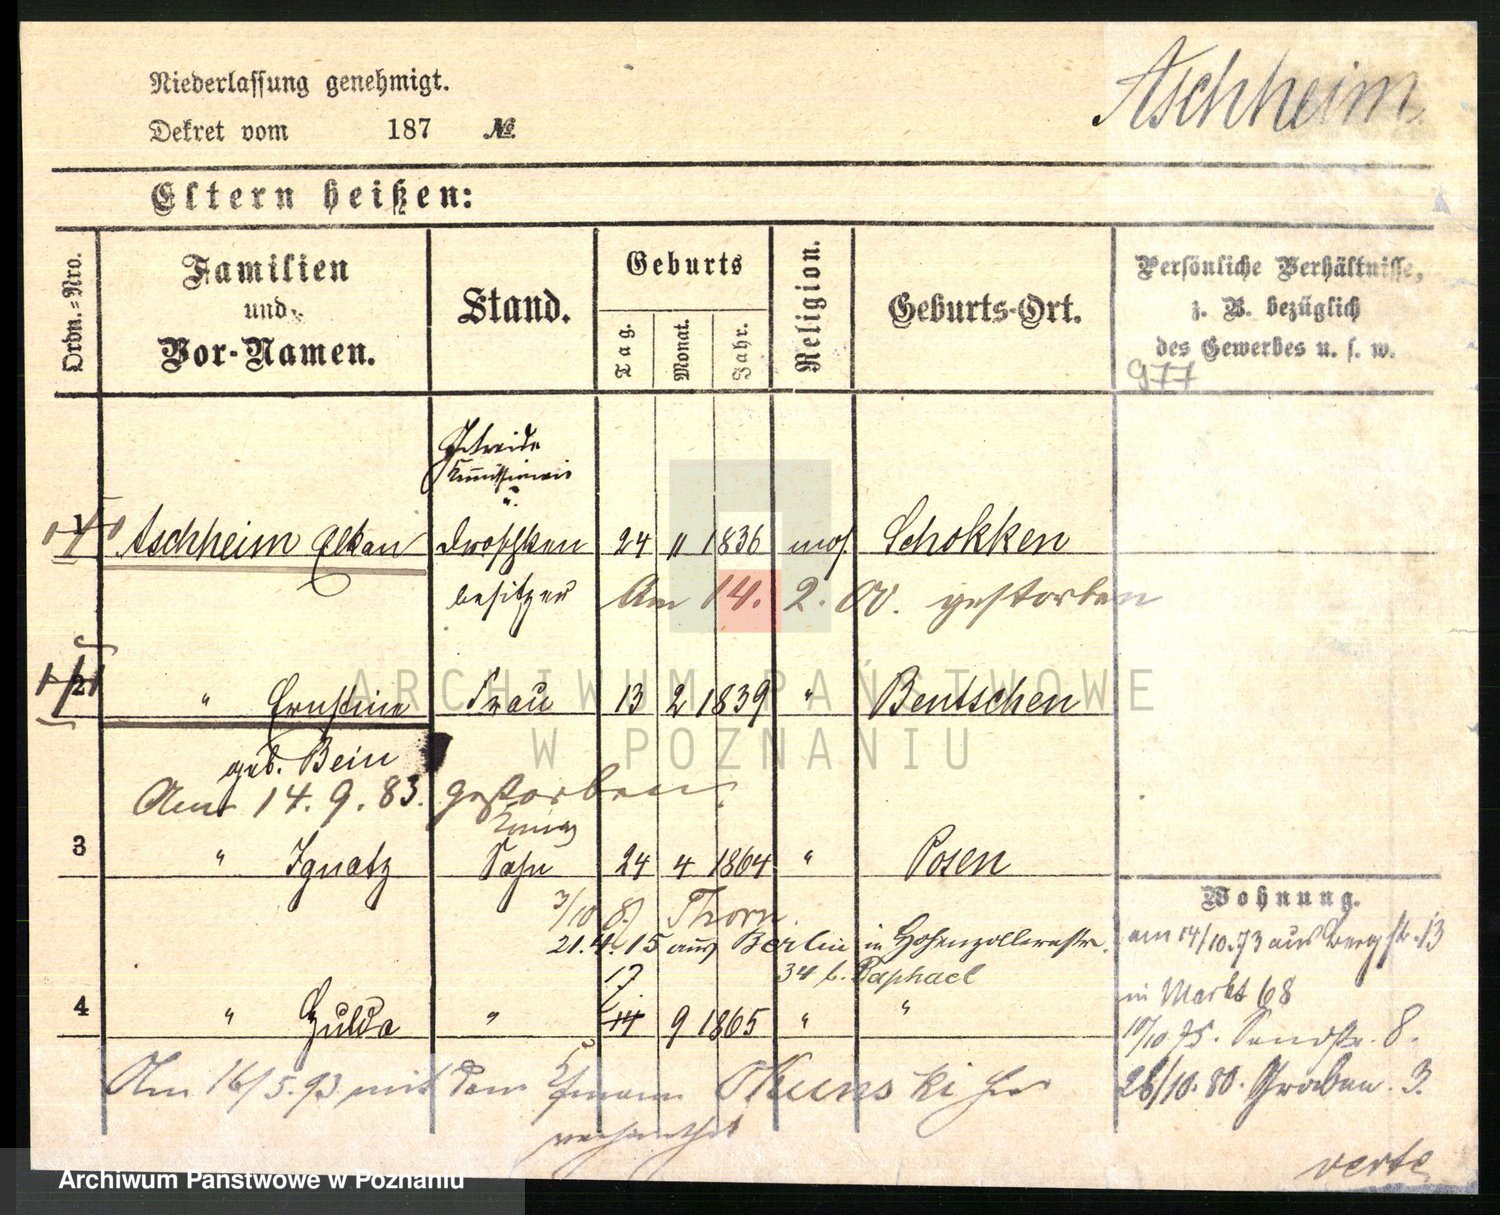 Niederlassung genehmigt.
Aschheim
Dekret vom 187 №
Eltern heißen:
Ordn.=Nro.
Familien
und
Vor-Namen.
Stand.
Geburts
Tag.
Monat.
Jahr.
Religion.
Geburts-Ort.
Persönliche Verhältnisse,
z. B. bezüglich
des Gewerbes u. s. w.
977
Getreide
Kommissionair
u.
1 Aschheim Elkan Droschken 24 11 1836 mos. Schokken
besitzer Am 14. 2. 00. gestorben
2 " Ernstine Frau 13 2 1839 " Bentschen
geb. Bein
Am 14. 9. 83. gestorben.
3 " Ignatz Sohn 24 4 1864 " Posen
Wohnung.
3/10 87 Thorn.
am 14/10.73 aus Bergstr. 13
21.4.15 aus Berlin in Hohenzollernstr.
34 b. Raphael
17
in Markt 68
4 " Hulda " 14 9 1865 " "
10/10 75. Sandstr. 8.
Am 16/5.93 mit dem Ehmann
26/10.80. Graben. 3.
verte
ARCHIWUM PAŃSTWOWE
W POZNANIU
Archiwum Państwowe w Poznaniu